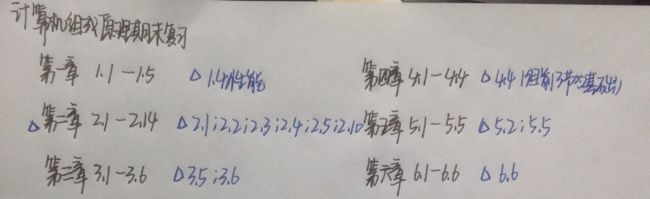 计算机组成原理期末复习
第一章 1.1-1.5 △1.4性能
△第二章 2.1-2.14 △2.1;2.2;2.3;2.4;2.5;2.10
第三章 3.1-3.6 △3.5;3.6
第四章 4.1-4.4 △4.4(但前3节次基础)
第五章 5.1-5.5 △5.2;5.5
第六章 6.1-6.6 △6.6